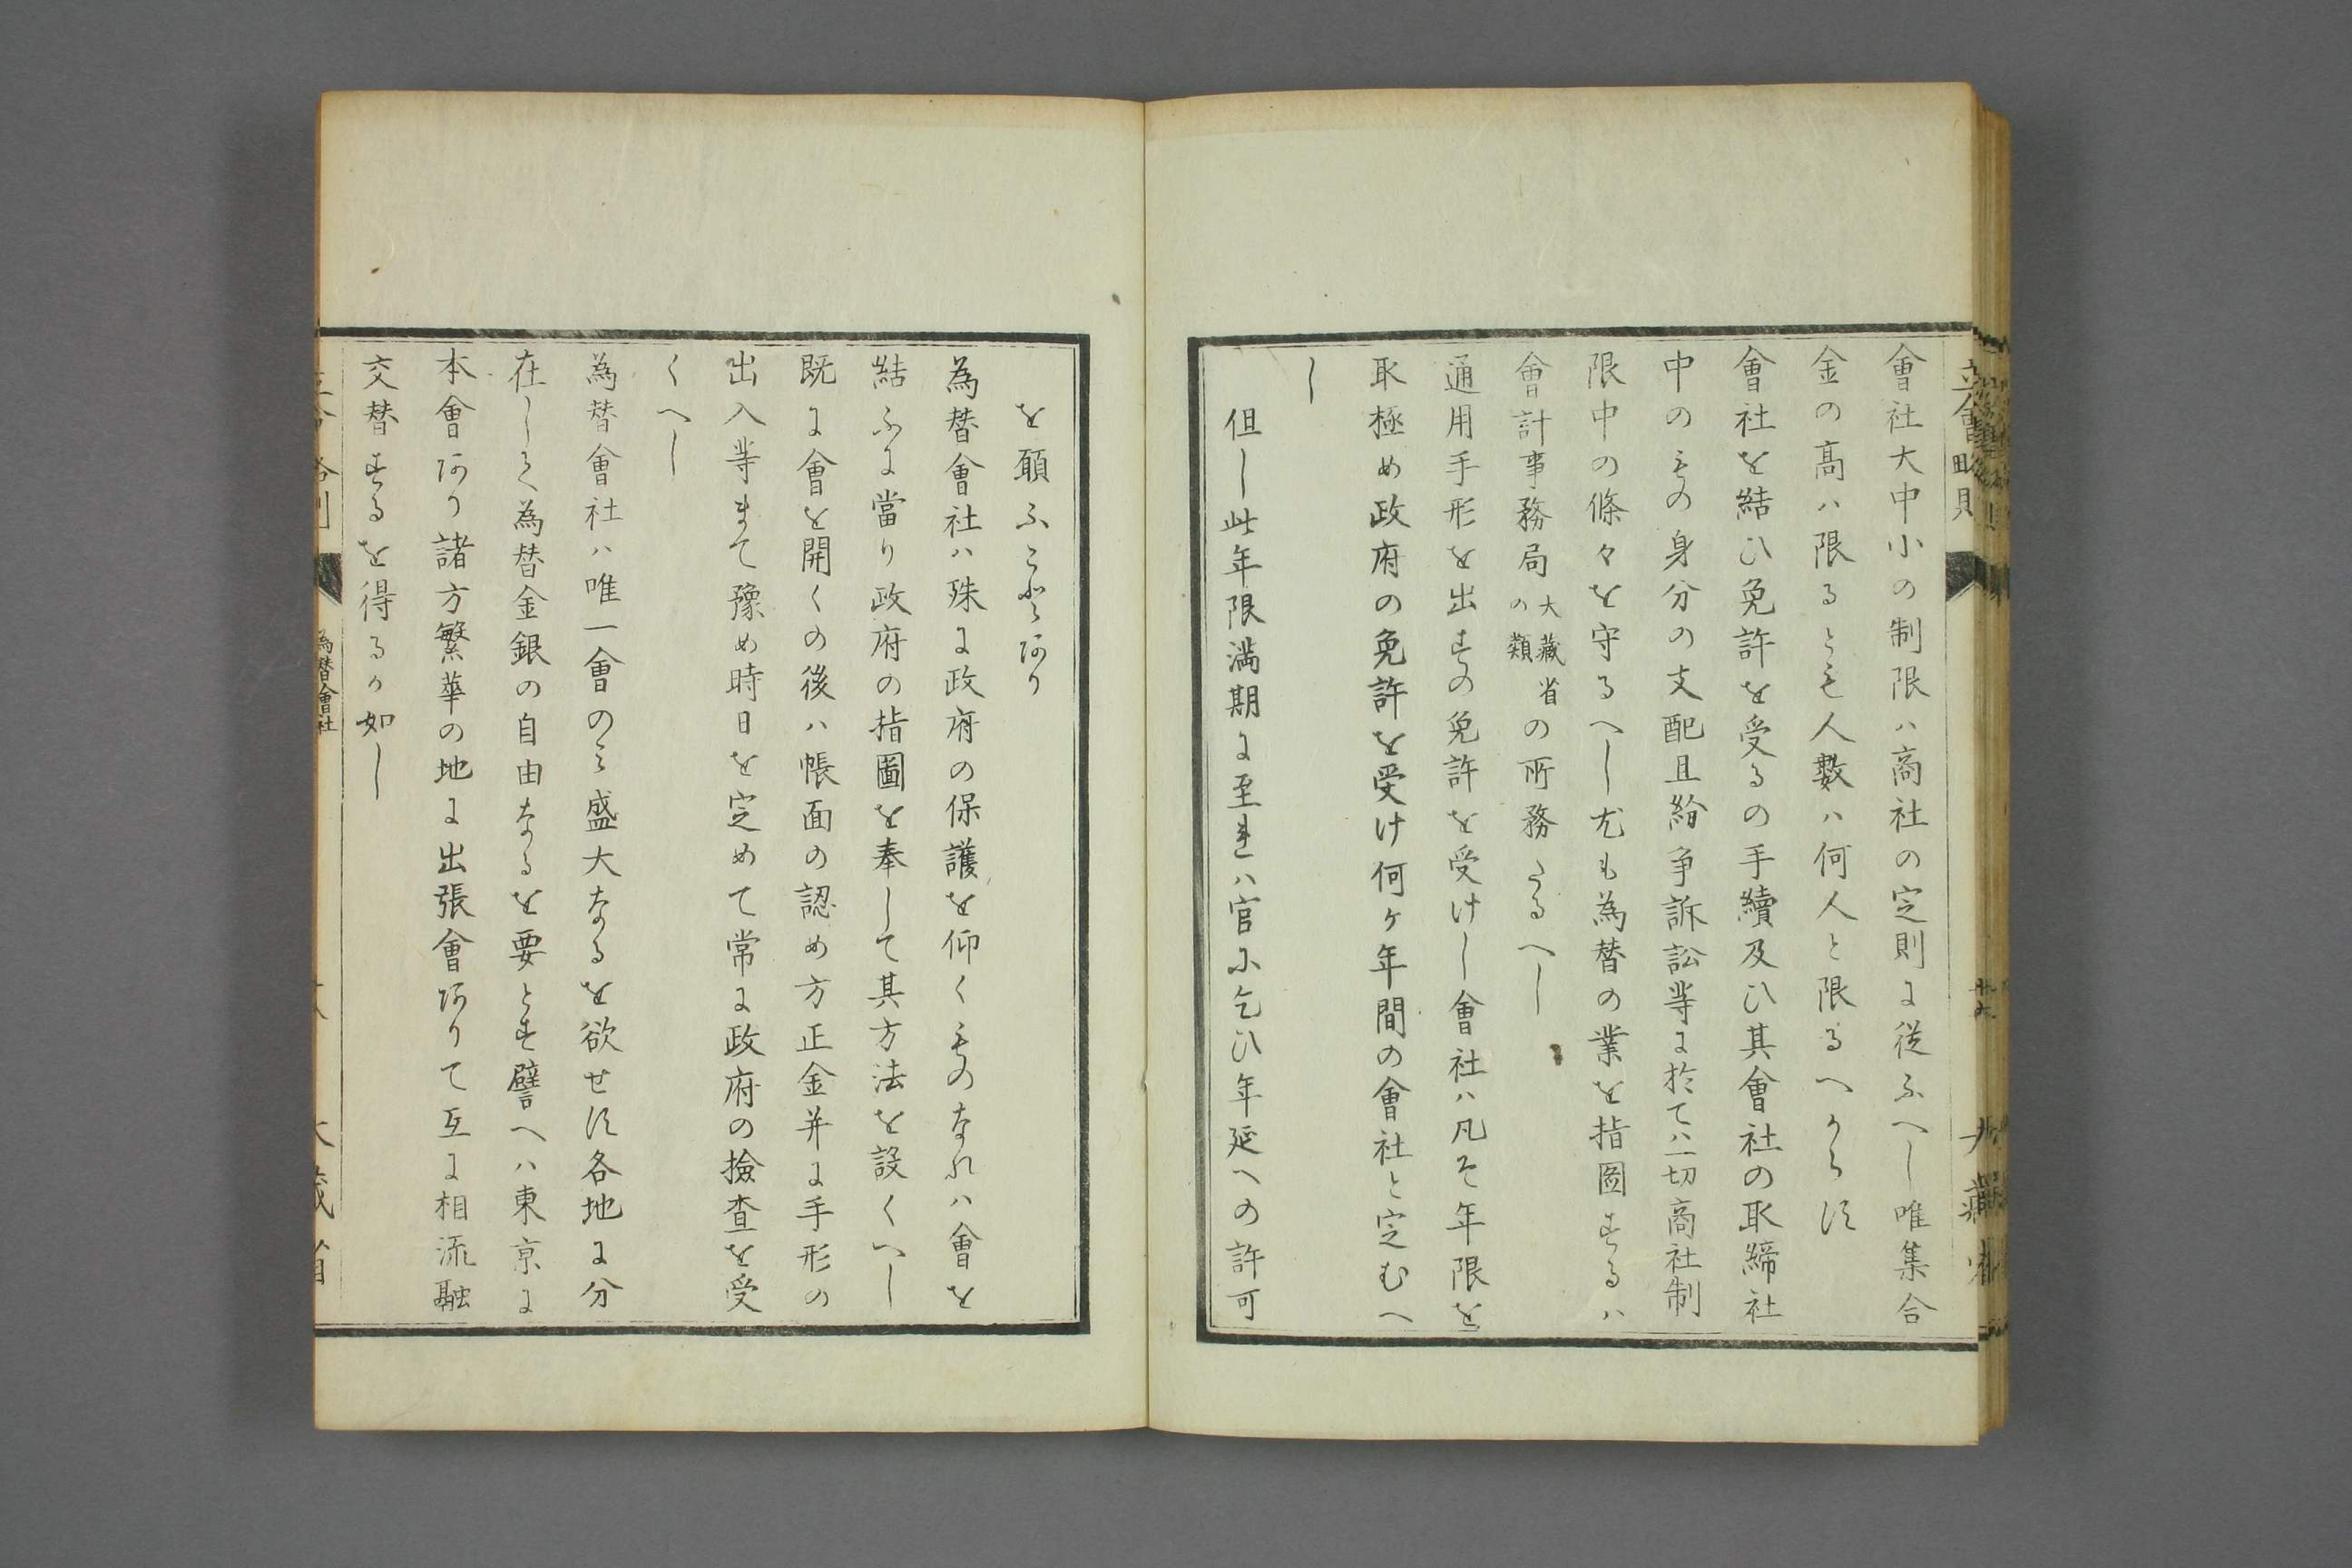 會社大中小の制限ハ商社の定則に從ふへし唯集合
金の高ハ限るとも人數ハ何人と限るへからす
會社を結ひ免許を受るの手續及ひ其會社の取締社
中のもの身分の支配且紛争訴訟等に於てハ一切商社制
限中の條々を守るへし尤も為替の業を指圖するハ
會計事務局大藏省の類の所務たるへし
通用手形を出すの免許を受けし會社ハ凡そ年限を
取極め政府の免許を受け何ヶ年間の會社と定むへ
し
但し此年限満期に至れハ官に乞ひ年延への許可
を願ふことあり
為替會社ハ殊に政府の保護を仰くものなれハ會を
結ふに當り政府の指圖を奉して其方法を設くへし
既に會を開くの後ハ帳面の認め方正金并に手形の
出入等まて豫め時日を定めて常に政府の撿査を受
くへし
為替會社ハ唯一會のみ盛大なるを欲せす各地に分
在して為替金銀の自由なるを要とす譬へハ東京に
本會あり諸方繁華の地に出張會ありて互に相流融
交替するを得るか如し
為替會社